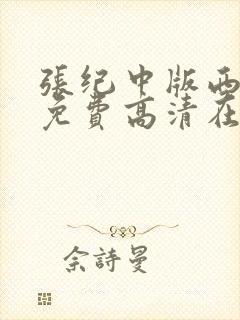 張纪中版西
免費高清在
佘詩曼